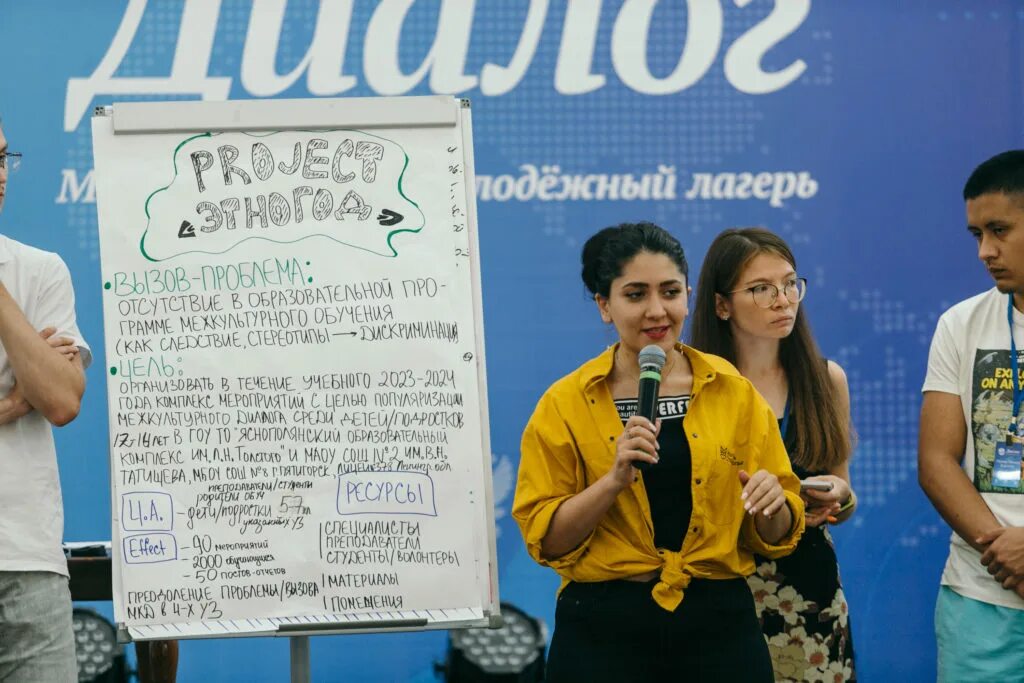 Диалог
лодёжный лагерь
PROJECT
ЭТНОГОД
• ВЫЗОВ-ПРОБЛЕМА:
ОТСУТСТВИЕ В ОБРАЗОВАТЕЛЬНОЙ ПРО-
ГРАММЕ МЕЖКУЛЬТУРНОГО ОБУЧЕНИЯ
(КАК СЛЕДСТВИЕ, СТЕРЕОТИПЫ → ДИСКРИМИНАЦИЯ)
• ЦЕЛЬ:
ОРГАНИЗОВАТЬ В ТЕЧЕНИЕ УЧЕБНОГО 2023-2024
ГОДА КОМПЛЕКС МЕРОПРИЯТИЙ С ЦЕЛЬЮ ПОПУЛЯРИЗАЦИИ
МЕЖКУЛЬТУРНОГО ДИАЛОГА СРЕДИ ДЕТЕЙ/ПОДРОСТКОВ
12-14 ЛЕТ В ГОУ ТО "ЯСНОПОЛЯНСКИЙ ОБРАЗОВАТЕЛЬНЫЙ
КОМПЛЕКС ИМ. Л.Н. ТОЛСТОГО" И МАОУ СОШ №2 ИМ. В.Н.
ТАТИЩЕВА, МБОУ СОШ №8 Г. ПЯТИГОРСК, ЛИЦЕЙ
преподаватели/студенты
родители обуч
Ц.А. - дети/подростки 5-7
указанных УЗ
Effect - 90 МЕРОПРИЯТИЙ
- 2000 обучающихся
- 50 ПОСТОВ-ОТЧЕТОВ
ПРЕОДОЛЕНИЕ ПРОБЛЕМЫ/ВЫЗОВА
МКО В 4-Х УЗ
РЕСУРСЫ
СПЕЦИАЛИСТЫ
ПРЕПОДАВАТЕЛИ
СТУДЕНТЫ/ВОЛОНТЕРЫ
МАТЕРИАЛЫ
ПОМЕЩЕНИЯ
you are
EXPL
ON ANY